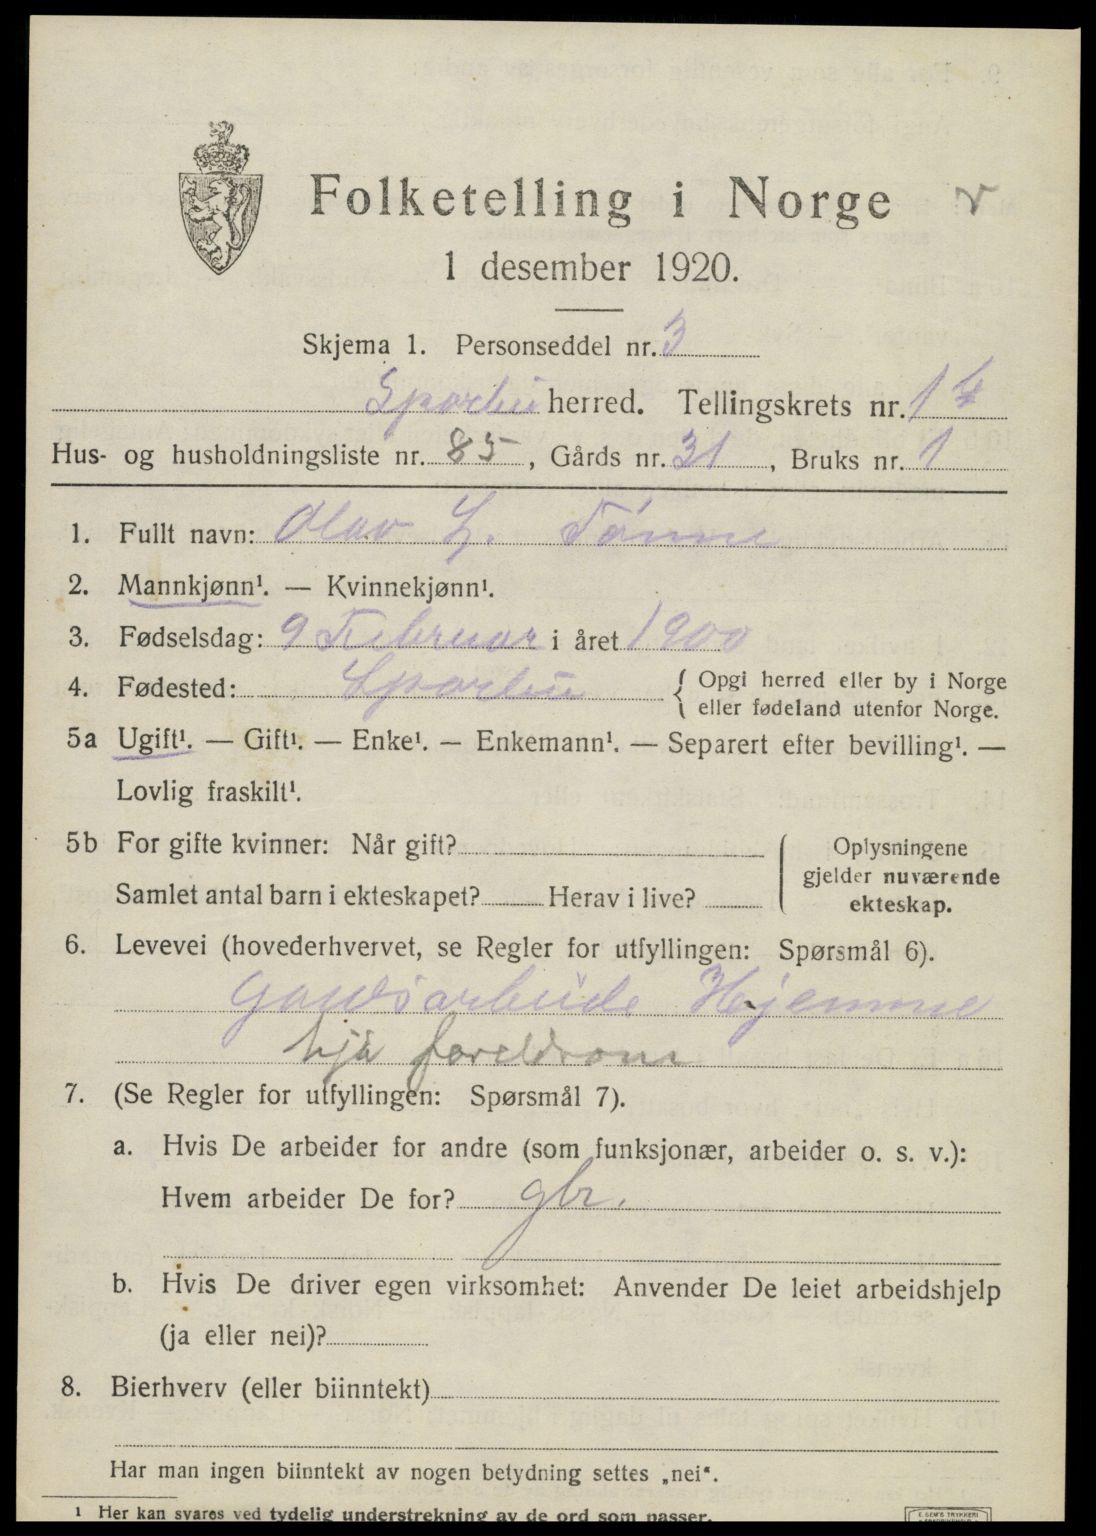 Folketelling i Norge
1 desember 1920.
Skjema 1. Personseddel nr. 3
Sparbu herred. Tellingskrets nr. 14
Hus- og husholdningsliste nr. 85, Gårds nr. 31, Bruks nr. 1
1. Fullt navn: Olav L. Tønne
2. Mannkjønn¹. — Kvinnekjønn¹.
3. Fødselsdag: 9 Februar i året 1900
4. Fødested: Sparbu { Opgi herred eller by i Norge
eller fødeland utenfor Norge.
5a Ugift¹. — Gift¹. — Enke¹. — Enkemann¹. — Separert efter bevilling¹. —
Lovlig fraskilt¹.
5b For gifte kvinner: Når gift?
Samlet antal barn i ekteskapet? Herav i live?
Oplysningene
gjelder nuværende
ekteskap.
6. Levevei (hovederhvervet, se Regler for utfyllingen: Spørsmål 6).
Hjemme
hjå foreldrom
7. (Se Regler for utfyllingen: Spørsmål 7).
a. Hvis De arbeider for andre (som funksjonær, arbeider o. s. v.):
Hvem arbeider De for? gbr.
b. Hvis De driver egen virksomhet: Anvender De leiet arbeidshjelp
(ja eller nei)?
8. Bierhverv (eller biinntekt)
Har man ingen biinntekt av nogen betydning settes „nei".
¹ Her kan svares ved tydelig understrekning av de ord som passer.